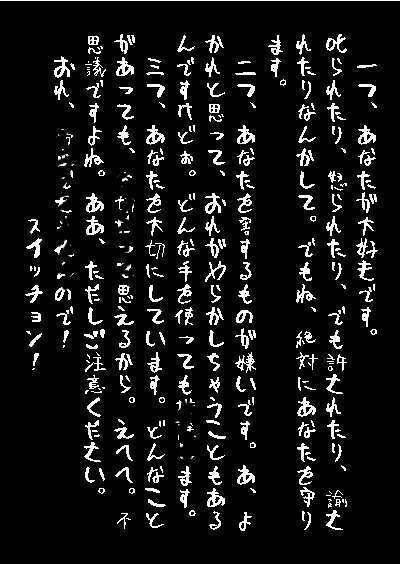 一つ、あなたが大好きです。
叱られたり、怒られたり、でも許されたり、諭さ
れたりなんかして。でもね、絶対にあなたを守り
ます。
二つ、あなたを害するものが嫌いです。あ、よ
かれと思って、おれがやらかしちゃうこともある
んですけどぉ。どんな手を使っても ます。
三つ、あなたを大切にしています。どんなこと
があっても、 思えるから。えへへ。不
思議ですよね。ああ、ただしご注意ください。
おれ、 ので!
スイッチョン!